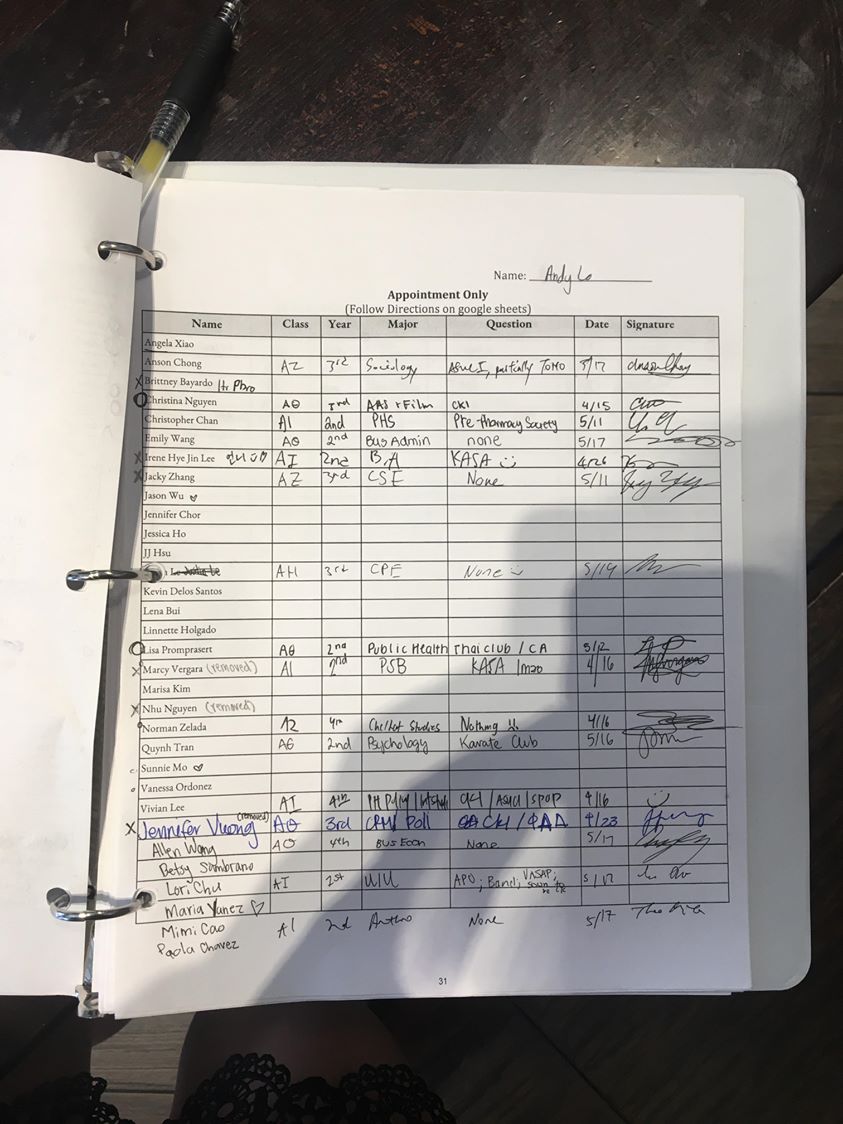 Name: Andy Lo
Appointment Only
(Follow Directions on google sheets)
Name Class Year Major Question Date Signature
Angela Xiao
Anson Chong AZ 3rd Sociology ASUCI, partially TOMO 5/17
X Brittney Bayardo
Christina Nguyen AΘ 3rd AAS + Film CKI 4/15
Christopher Chan AI 2nd PHS Pre-pharmacy Society 5/11
Emily Wang AΘ 2nd Bus Admin none 5/17
X Irene Hye Jin Lee 언니 AI 2nd B.A KASA 4/26
X Jacky Zhang AZ 3rd CSE None 5/11
Jason Wu ♡
Jennifer Chor
Jessica Ho
JJ Hsu
AH 3rd CPE None 5/14
Kevin Delos Santos
Lena Bui
Linnette Holgado
Lisa Promprasert AΘ 2nd Public Health Thai club / CA 5/2
X Marcy Vergara (removed) AI 2nd PSB KASA 4/16
Marisa Kim
X Nhu Nguyen (removed)
Norman Zelada AZ 4th Chc/Lat Studies Nothing !! 4/16
Quynh Tran AΘ 2nd Psychology Karate Club 5/16
Sunnie Mo ♡
Vanessa Ordonez
Vivian Lee AI 4th CKI / ASUCI / SPOP 4/16
X Jennifer Vuong (removed) AΘ 3rd Poli CKI / ΦΑΔ 4/23
Allen Wang AΘ 4th BUS ECON None 5/17
Betsy Sambrano
Lori Chu AI 1st U/U APO; Band; VASAP; soon to be CK 5/17
Maria Yanez ♡
Mimi Cao AI 2nd Anthro None 5/17
Paola Chavez
31